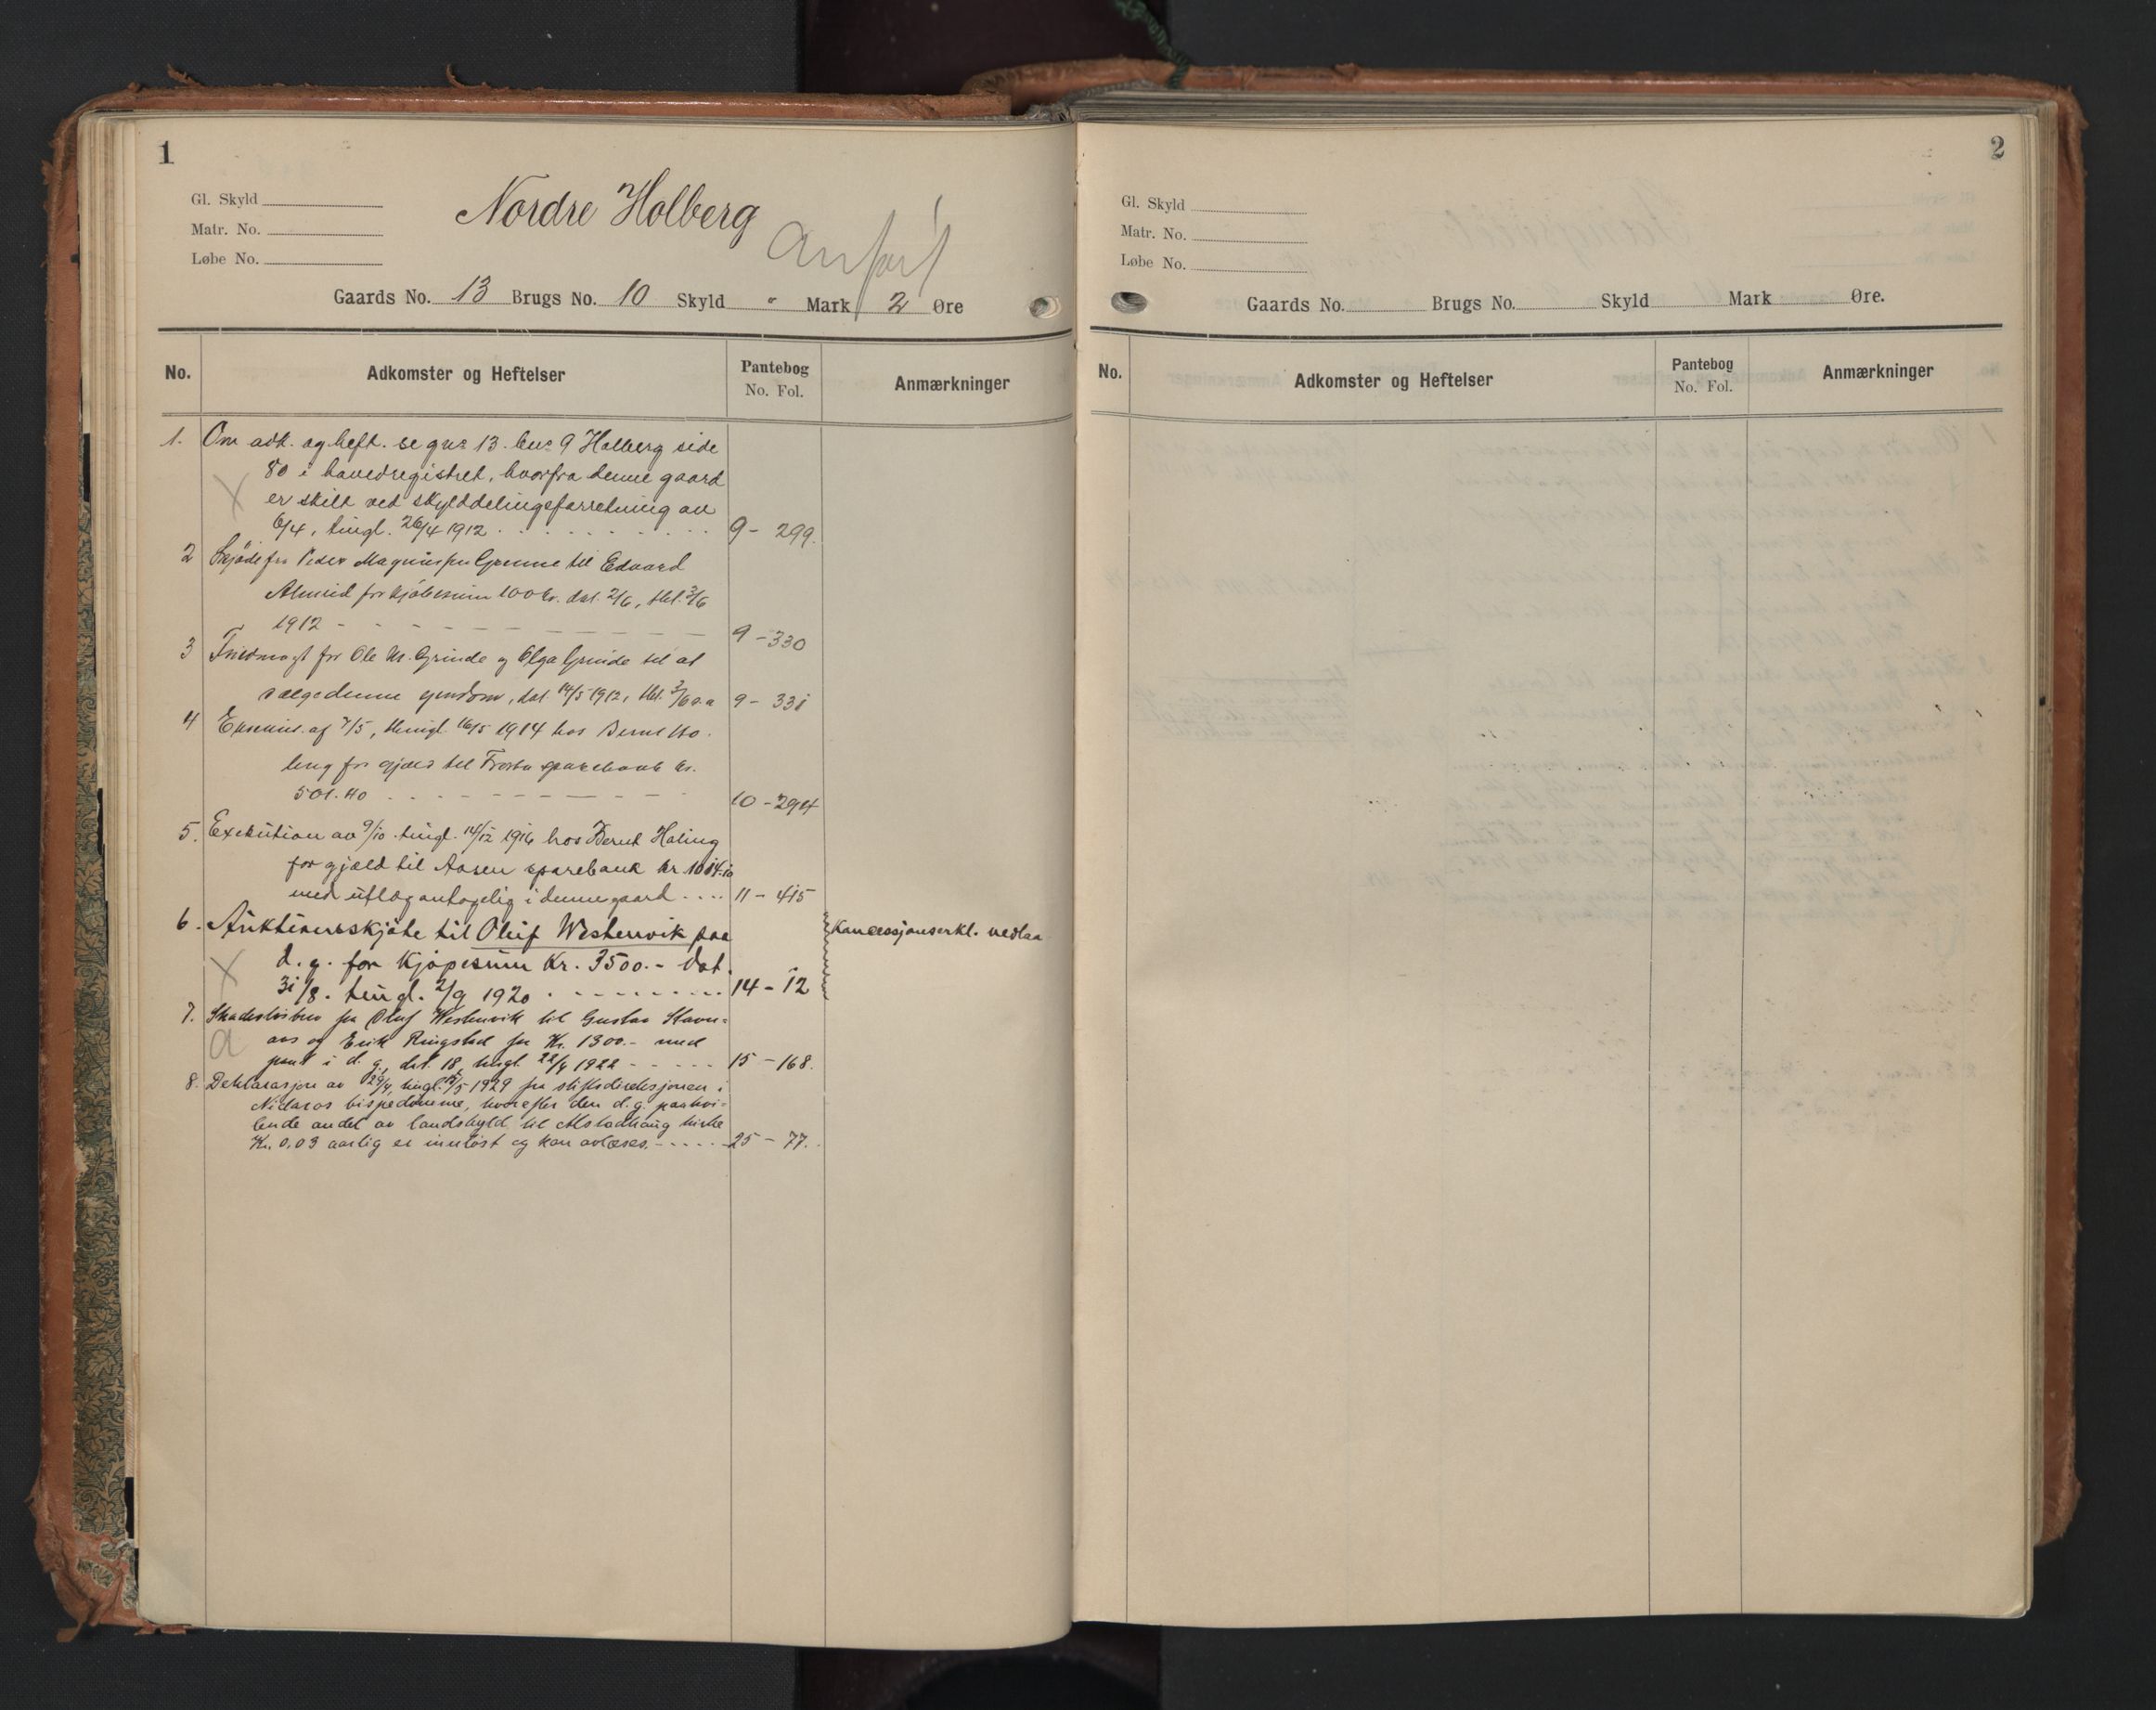 1
Gl. Skyld
Matr. No.
Løbe No.
Nordre Holberg
Anført
Gaards No. 13 Brugs No. 10 Skyld " Mark 2 Øre
No. Adkomster og Heftelser Pantebog No. Fol. Anmærkninger
1. Om adk. og heft. se gnr 13. bnr 9 Holberg side
80 i hovedregistret, hvorfra denne gaard
er skilt ved skylddelingsforretning av
6/4, tingl. 26/4 1912 9 - 299.
2 Skjøde fra Peder til Edvard
for kjøbesum 100 kr. dat. 2/6, tbl. 3/6
1912 9 - 330
3 for Ole Kr. Grinde og Olga Grinde til at
sælge denne eiendom, dat. 14/5 1912, tbl. 3/6 s.a 9 - 331
4 af 7/5, thingl. 16/5 1914 hos Bernt Ho-
ling for gjæld til Frosta sparebank kr.
501.40 10 - 294
5. Exekution av 9/10. tingl. 14/12 1916 hos Bernt Holing
for gjæld til Aasen sparebank kr.
med utlæg antagelig i denne gaard .... 11 - 415
6. Auktionsskjøte til Oluf Westervik paa
d. g. for Kjøpesum Kr. 3500.- dat.
31/8. tingl. 2/9 1920 14 - 12
Koncessjonserkl. vedlaa
7. Skadesløsbrev fra Oluf Westervik til Gustav Stavn-
aas og Erik Ringstad for Kr. 1300.- med
pant i d. g., dat. 18, tingl. 22/4 1922 15 - 168.
8. Deklarasjon av 29/4, tingl. 1929 fra stiftsdireksjonen i
Nidaros bispedømme, hvorefter den d. g. paahvi-
lende andel av landskyld til Alstadhaug kirke
Kr. 0,03 aarlig er innløst og kan avlæses. 25 - 77.
2
Gl. Skyld
Matr. No.
Løbe No.
Gaards No. Brugs No. Skyld Mark Øre.
No. Adkomster og Heftelser Pantebog No. Fol. Anmærkninger